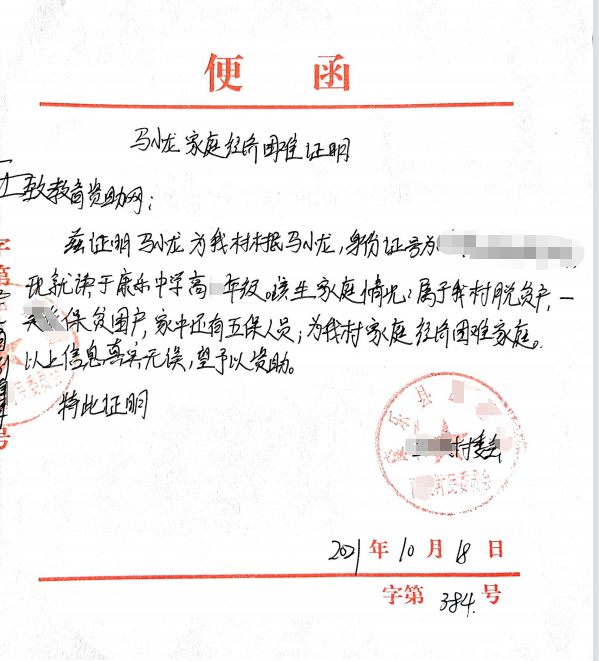 便 函
马小龙家庭经济困难证明
致教育资助网:
兹证明马小龙为我村村民马小龙,身份证号为
现就读于康乐中学高 年级。该生家庭情况:属于我村脱贫户,一
类低保贫困户,家中还有五保人员;为我村家庭经济困难家庭。
以上信息真实无误,望予以资助。
特此证明
村委会
村民委员会
2021年10月18日
字第384.号